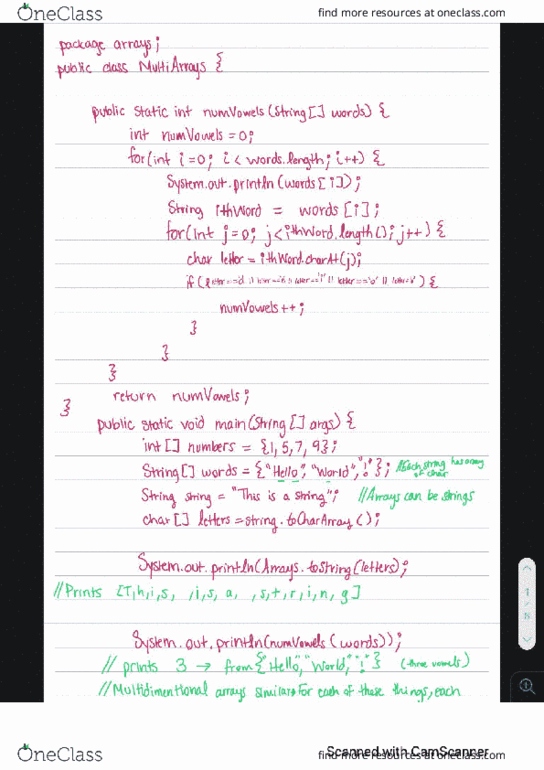 OneClass
find more resources at oneclass.com
package arrays;
public class MultiArrays {
public static int numVowels (String[] words) {
int numVowels = 0;
for(int i=0; i < words.length; i++) {
System.out.println(words[i]);
String ithWord = words[i];
for(int j=0; j<ithWord.length(); j++) {
char letter = ithWord.charAt(j);
if (
) {
numVowels++;
}
}
}
return numVowels;
}
public static void main(String[] args) {
int[] numbers = {1,5,7,9};
String[] words = {"Hello", "World", "!"}; //Each string has array of char
String string = "This is a string"; //Arrays can be strings
char[] letters = string.toCharArray();
System.out.println(Arrays.toString(letters);
//Prints [T,h,i,s, ,i,s, a, ,s,t,r,i,n,g]
System.out.println(numVowels(words));
// prints 3 → from {"Hello", "World", "!"} (three vowels)
//Multidimentional arrays similar for each of these things, each
1
8
OneClass
Scanned with CamScanner
find more resources at oneclass.com